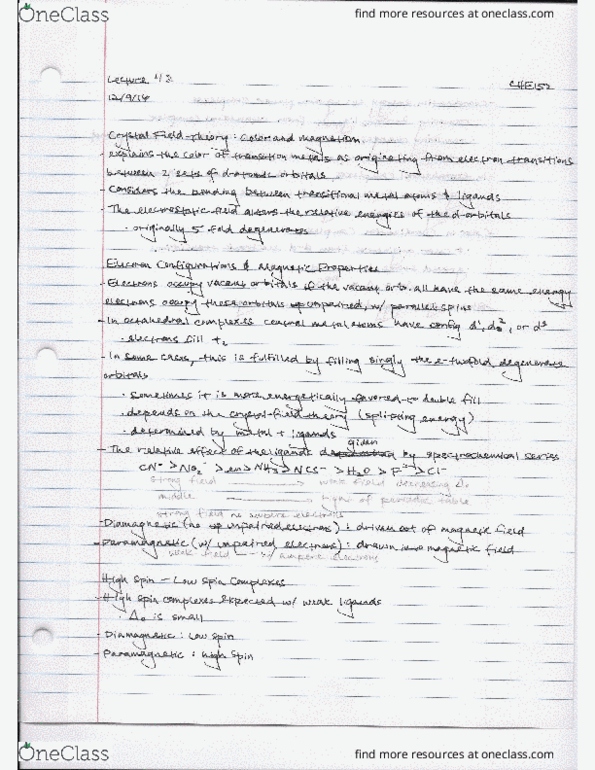 OneClass
find more resources at oneclass.com
Lecture
CHE152
12/9/14
Crystal Field Theory: Color and magnetism
- explains the color of transition metals as originating from electron transitions
between 2 sets of d-atomic orbitals
- Considers the bonding between transitional metal atoms & ligands
- The electrostatic field alters the relative energies of the d-orbitals
· originally 5 fold degenerates
Electron Configurations & Magnetic Properties
- Electrons occupy vacant orbitals if the vacant orb. all have the same energy
electrons occupy these orbitals unpaired, w/ parallel spins
- In octahedral complexes central metal atoms have config d¹, d², or d³
· electrons fill t₂
- In some cases, this is fulfilled by filling singly the e-twofold degenerous
orbitals
· sometimes it is more energetically favored to double fill
· depends on the crystal-field theory (splitting energy)
· determined by metal + ligands
given
- The relative effect of the ligands by spectrochemical series
CN⁻ > NO₂⁻ > en > NH₃ > NCS⁻ > H₂O > F⁻ > Cl⁻
strong field → weak field decreasing Δ₀
middle of periodic table
strong field no
- Diamagnetic (no unpaired electrons): driven out of magnetic field
- Paramagnetic (w/ unpaired electrons): drawn into magnetic field
weak field electrons
High Spin - Low Spin Complexes
- High spin complexes expected w/ weak ligands
· Δ₀ is small
- Diamagnetic: low spin
- Paramagnetic: high spin
OneClass
find more resources at oneclass.com